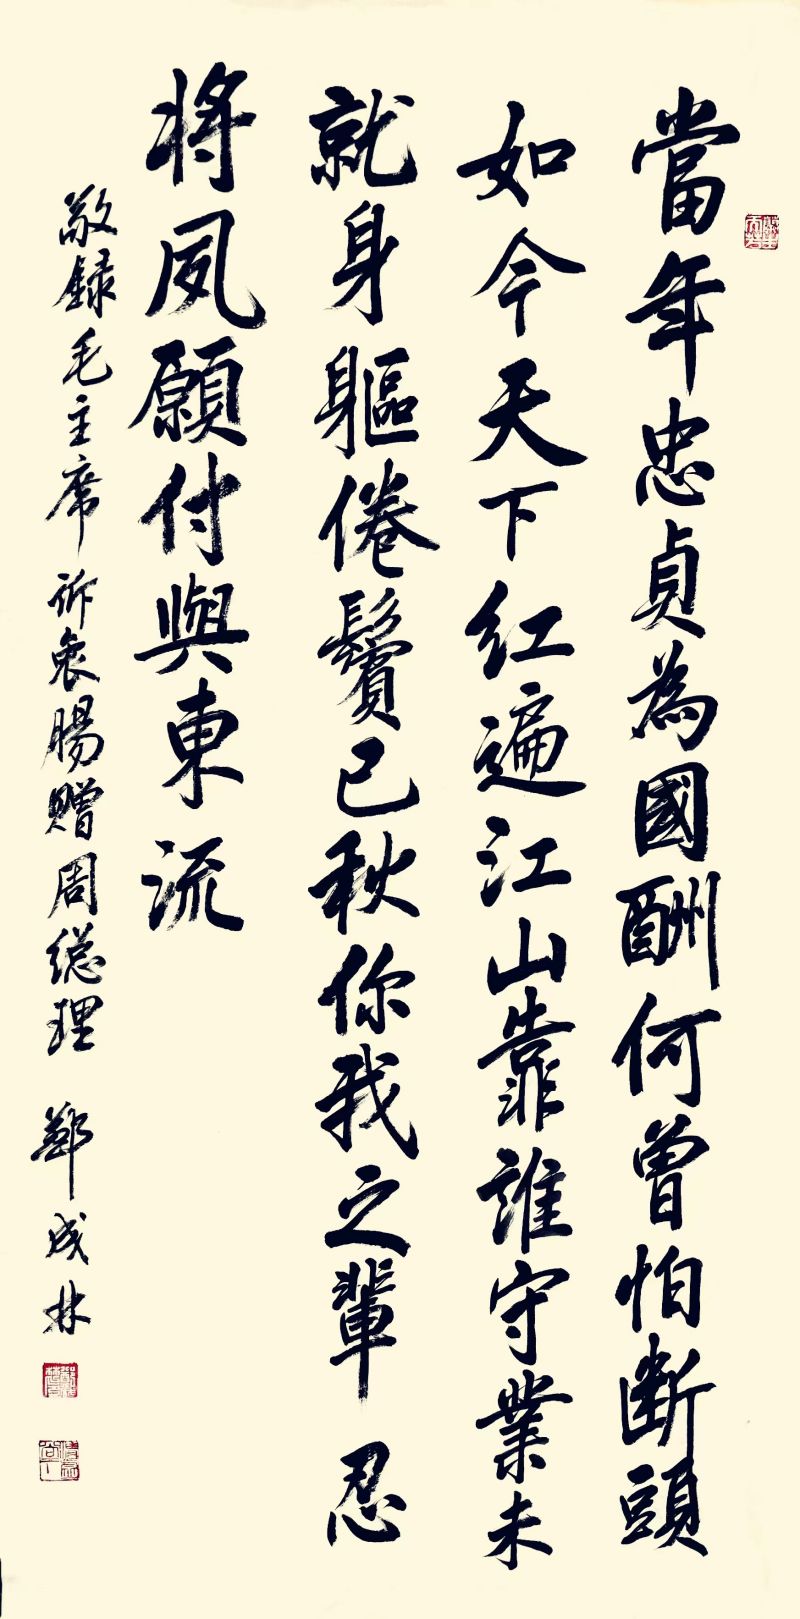 當年忠貞為國酬何曾怕断頭
如今天下红遍江山靠誰守業未
就身軀倦鬓已秋你我之輩忍
将夙願付與東流
敬録毛主席诉衷肠赠周總理 鄭成林